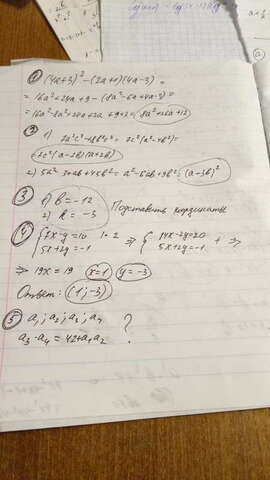 ① (4a+3)² - (2a+1)(4a-3) =
= 16a²+24a+9 - (8a²-6a+4a-3) =
= 16a²-8a²+24a+2a+9+3 = 8a²+26a+12
② 1) 2a²c²-18b²c² = 2c²(a²-4b²) =
= 2c²(a-2b)(a+2b)
2) 5a²-30ab+45b² = a²-6ab+9b² = (a-3b)²
③ 1) b = -12
2) k = -3
Подставить координаты
④ { 7x-y=10 |·2 ⇒ { 14x-2y=20 + ⇒
5x+2y=-1 5x+2y=-1
⇒ 19x = 19 x=1 y=-3
Ответ: (1;-3)
⑤ a₁; a₂; a₃; a₄ ?
a₃·a₄ = 42+a₁a₂